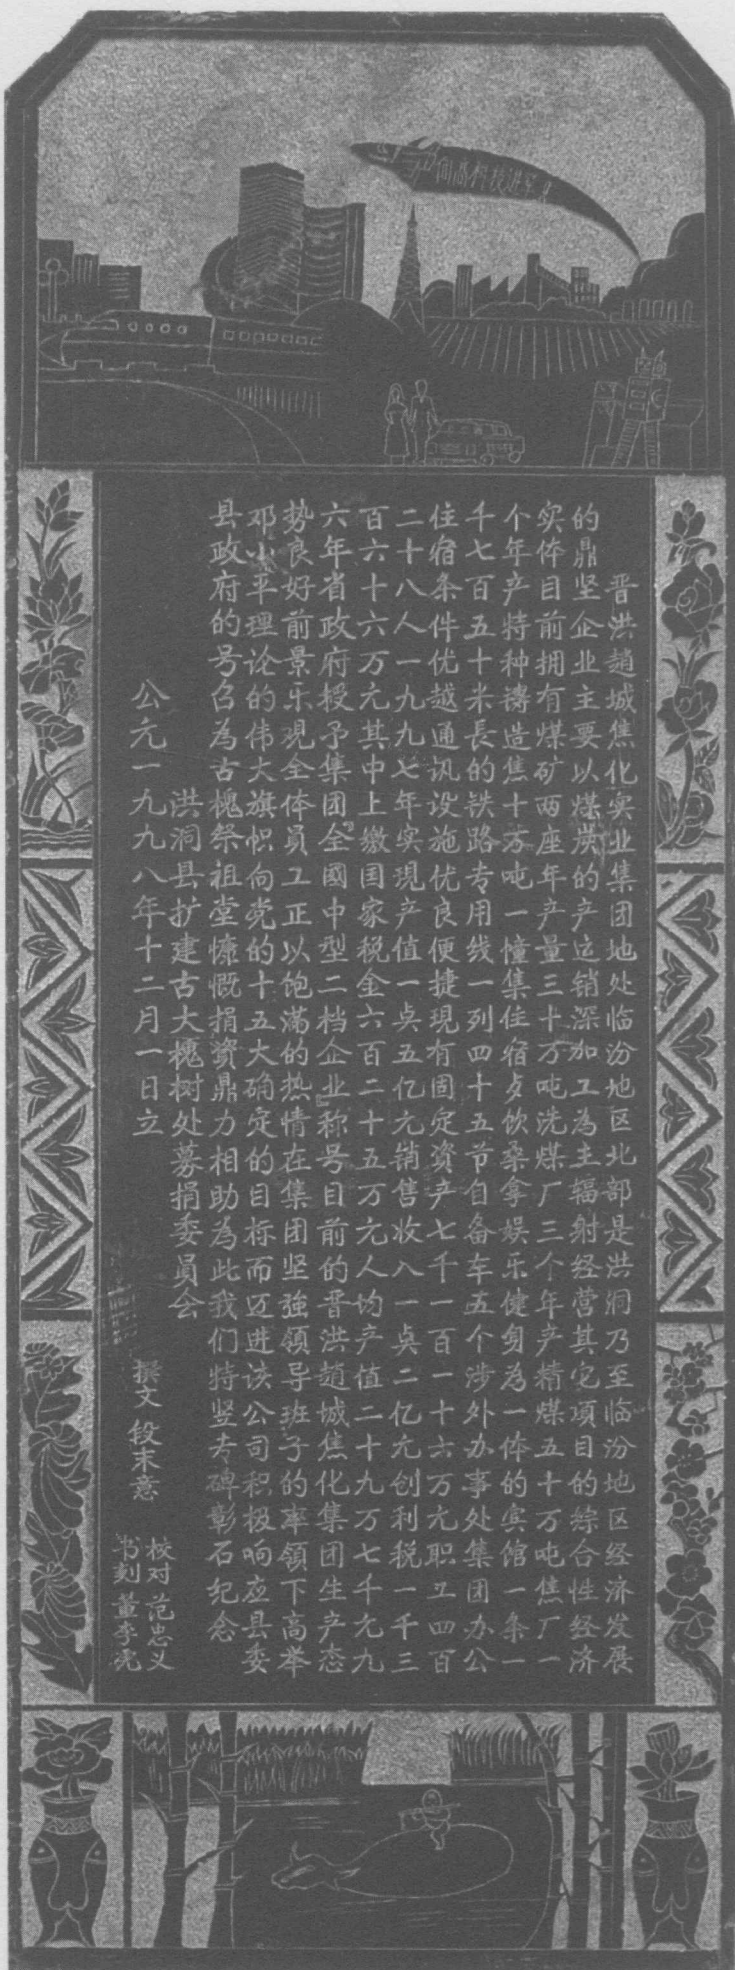 向高科技进军
晋洪趙城焦化实业集团地处临汾地区北部是洪洞乃至临汾地区经济发展
的鼎坚企业主要以煤炭的产运销深加工为主辐射经营其它项目的综合性经济
实体目前拥有煤矿两座年产量三十万吨洗煤厂三个年产精煤五十万吨焦厂一
个年产特种鑄造焦十万吨一幢集住宿歺饮桑拿娱乐健身为一体的宾馆一条一
千七百五十米長的铁路专用线一列四十五节自备车五个涉外办事处集团办公
住宿条件优越通讯设施优良便捷現有固定资产七千一百一十六万元职工四百
二十八人一九九七年实現产值一奌五亿元销售收入一奌二亿元创利税一千三
百六十六万元其中上缴国家税金六百二十五万元人均产值二十九万七千元九
六年省政府授予集团『全國中型二档企业』称号目前的晋洪趙城焦化集团生产态
势良好前景乐观全体員工正以饱满的热情在集团坚強领导班子的率領下高举
邓小平理论的伟大旗帜向党的十五大确定的目标而迈进该公司积极响应县委
县政府的号召為古槐祭祖堂慷慨捐資鼎力相助為此我们特竖专碑彰石纪念
洪洞县扩建古大槐树处募捐委員会
公元一九九八年十二月一日立
撰文 段末意
校对 范忠义
书刻 董李亮